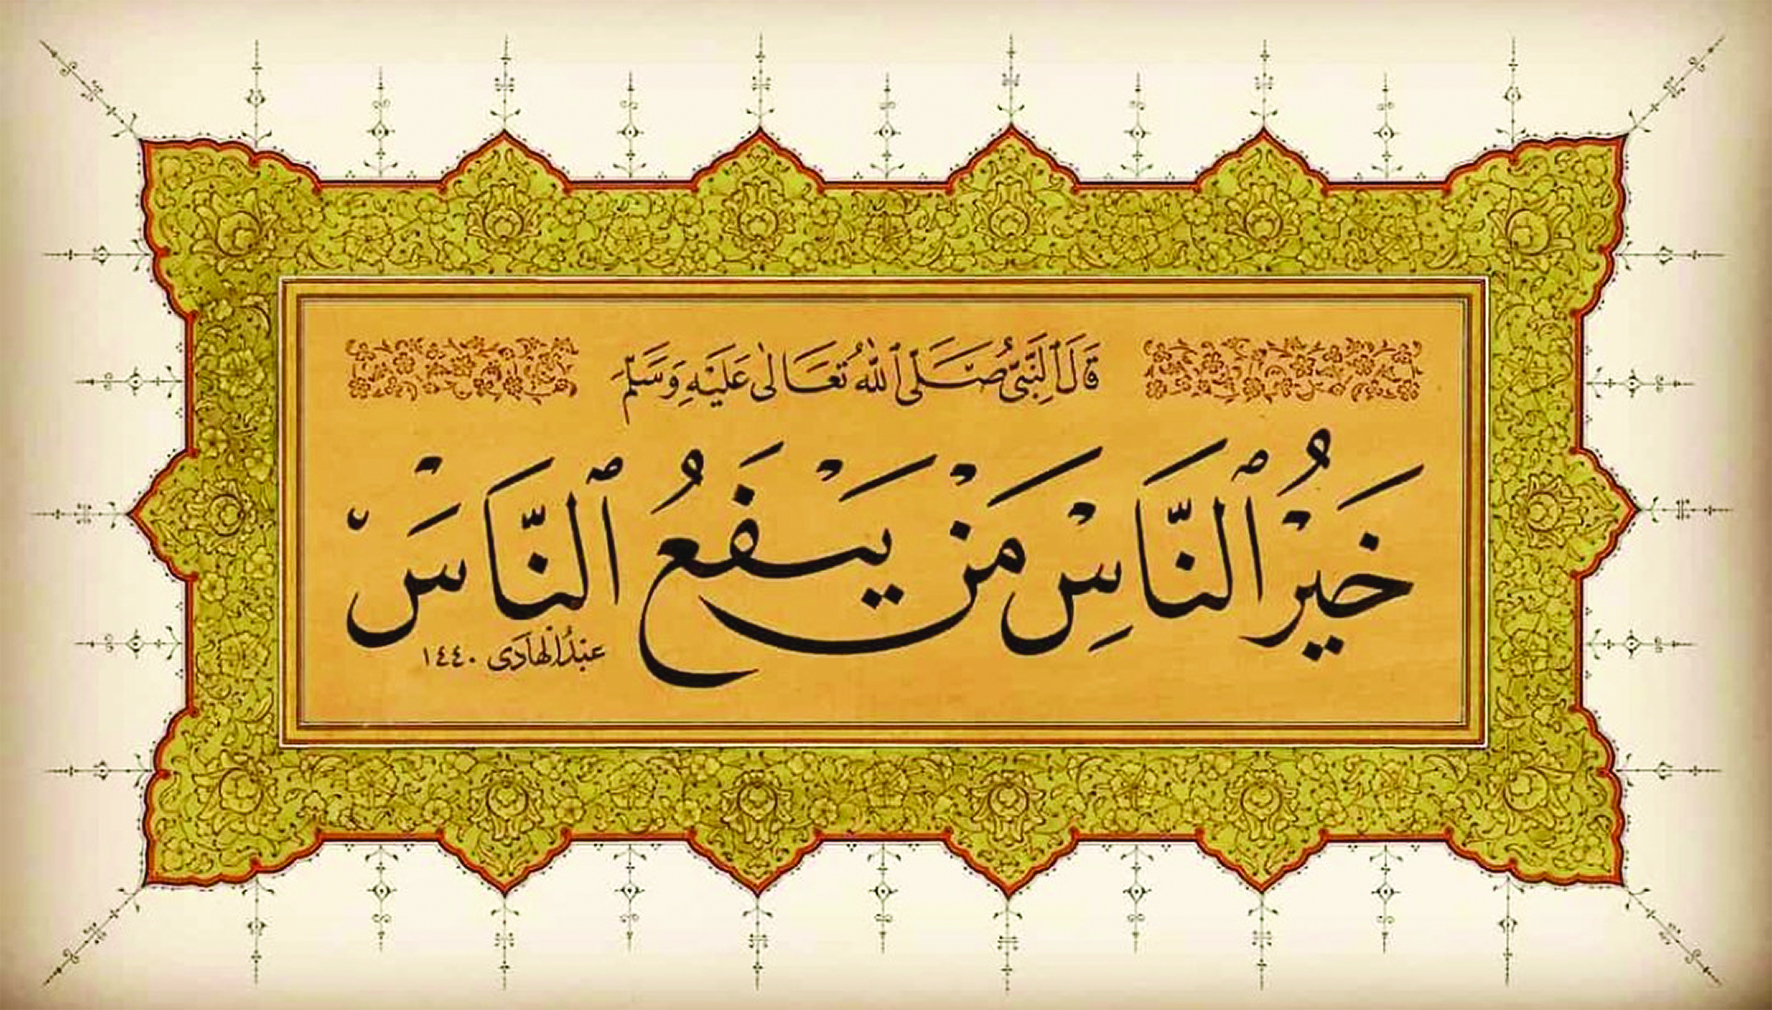 قَالَ ٱلنَّبِيُّ صَلَّى ٱللّٰهُ تَعَالٰى عَلَيْهِ وَسَلَّمَ
خَيْرُ ٱلنَّاسِ مَنْ يَنْفَعُ ٱلنَّاسَ
عَبْدُ الْهَادِى ١٤٤٠